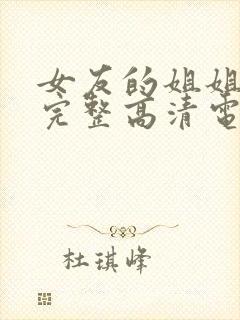 女友的姐姐
完整高清电
杜琪峰